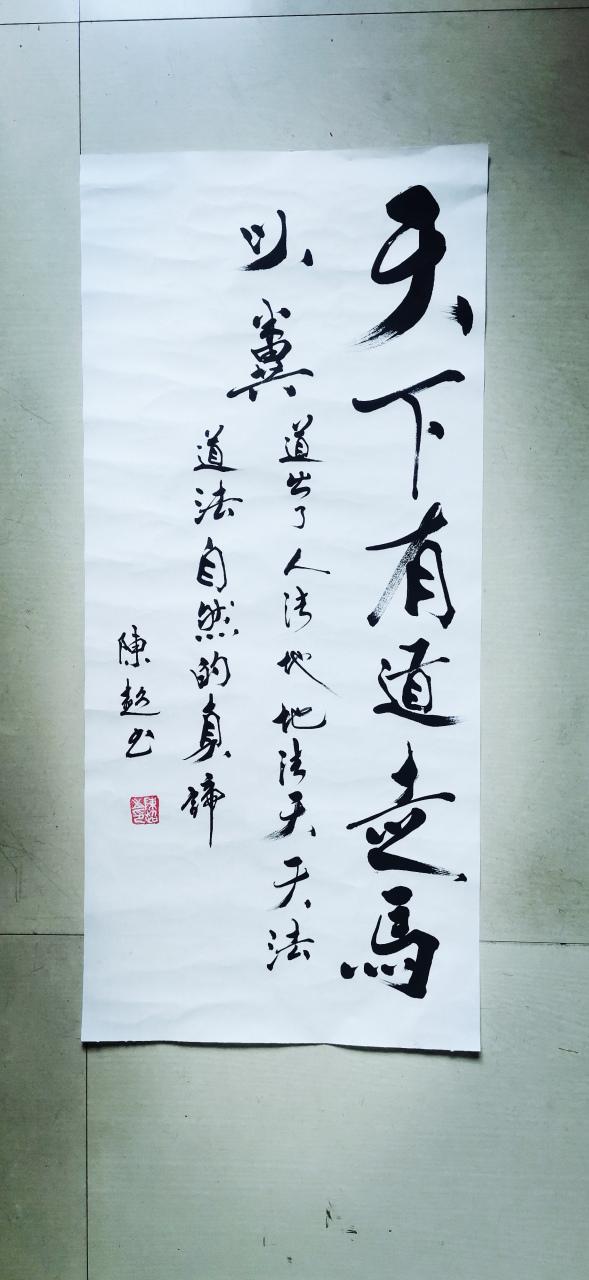 天下有道走馬
以糞
道出了人法地地法天天法
道法自然的真諦
陳超书
陳超之印